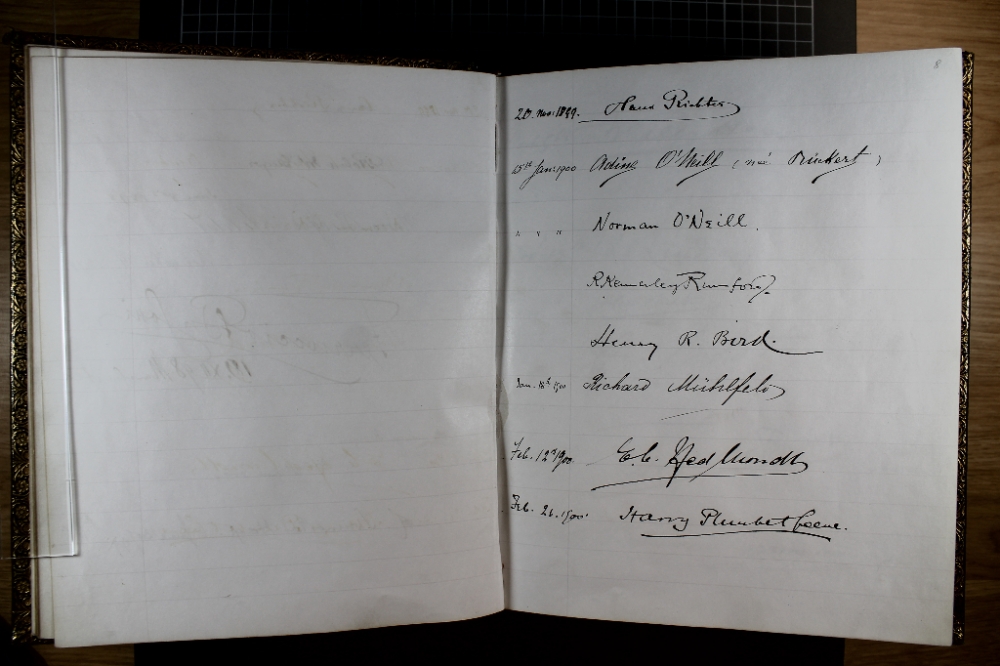 8
20. Nov: 1899. Hans Richter
15th Jan: 1900 Adine O'Neill (née Rückert)
" " " Norman O'Neill.
R. Kennerley Rumford.
Henry R. Bird.
Jan. 18th 1900 Richard Mühlfeld
Feb. 12th 1900 E. C. Hedmondt
Feb. 26. 1900. Harry Plunket Greene.